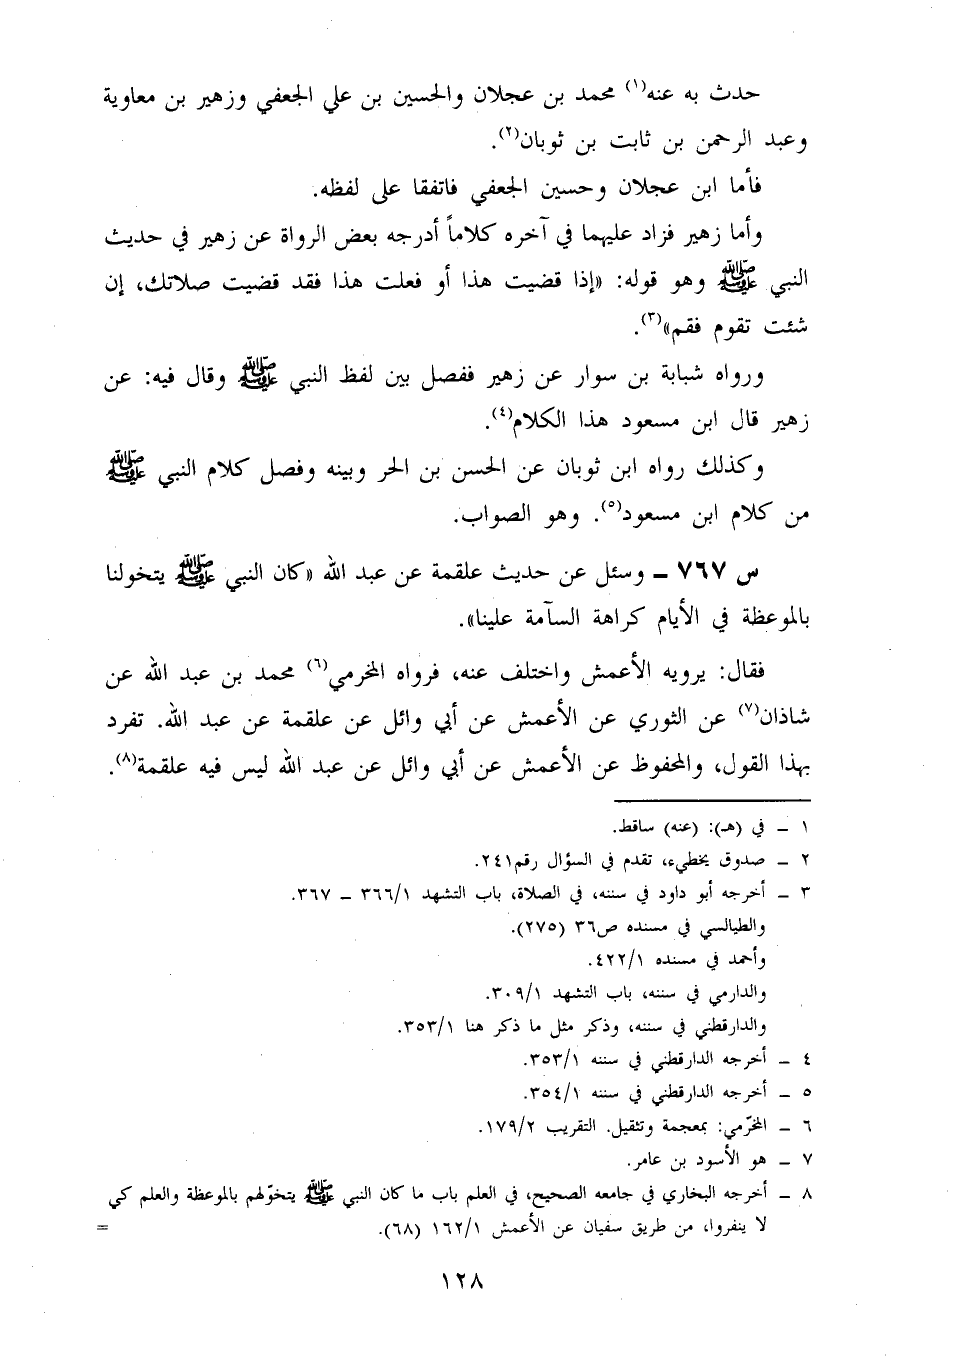 حدث به عنه(١) محمد بن عجلان والحسين بن علي الجعفي وزهير بن معاوية
وعبد الرحمن بن ثابت بن ثوبان(٢).
فأما ابن عجلان وحسين الجعفي فاتفقا على لفظه.
وأما زهير فزاد عليهما في آخره كلاماً أدرجه بعض الرواة عن زهير في حديث
النبي ﷺ وهو قوله: «إذا قضيت هذا أو فعلت هذا فقد قضيت صلاتك، إن
شئت تقوم فقم»(٣).
ورواه شبابة بن سوار عن زهير ففصل بين لفظ النبي ﷺ وقال فيه: عن
زهير قال ابن مسعود هذا الكلام(٤).
وكذلك رواه ابن ثوبان عن الحسن بن الحر وبينه وفصل كلام النبي ﷺ
من كلام ابن مسعود(٥). وهو الصواب.
س ٧٦٧ ـ وسئل عن حديث علقمة عن عبد الله «كان النبي ﷺ يتخولنا
بالموعظة في الأيام كراهة السآمة علينا».
فقال: يرويه الأعمش واختلف عنه، فرواه المخرمي(٦) محمد بن عبد الله عن
شاذان(٧) عن الثوري عن الأعمش عن أبي وائل عن علقمة عن عبد الله. تفرد
بهذا القول، والمحفوظ عن الأعمش عن أبي وائل عن عبد الله ليس فيه علقمة(٨).
١ ـ في (هـ): (عنه) ساقط.
٢ ـ صدوق يخطيء، تقدم في السؤال رقم٢٤١.
٣ ـ أخرجه أبو داود في سننه، في الصلاة، باب التشهد ٣٦٦/١ ـ ٣٦٧.
والطيالسي في مسنده ص٣٦ (٢٧٥).
وأحمد في مسنده ٤٢٢/١.
والدارمي في سننه، باب التشهد ٣٠٩/١.
والدارقطني في سننه، وذكر مثل ما ذكر هنا ٣٥٣/١.
٤ ـ أخرجه الدارقطني في سننه ٣٥٣/١.
٥ ـ أخرجه الدارقطني في سننه ٣٥٤/١.
٦ ـ المخرّمي: بمعجمة وتثقيل. التقريب ١٧٩/٢.
٧ ـ هو الأسود بن عامر.
٨ ـ أخرجه البخاري في جامعه الصحيح، في العلم باب ما كان النبي ﷺ يتخوّلهم بالموعظة والعلم كي
لا ينفروا، من طريق سفيان عن الأعمش ١٦٢/١ (٦٨). =
١٢٨